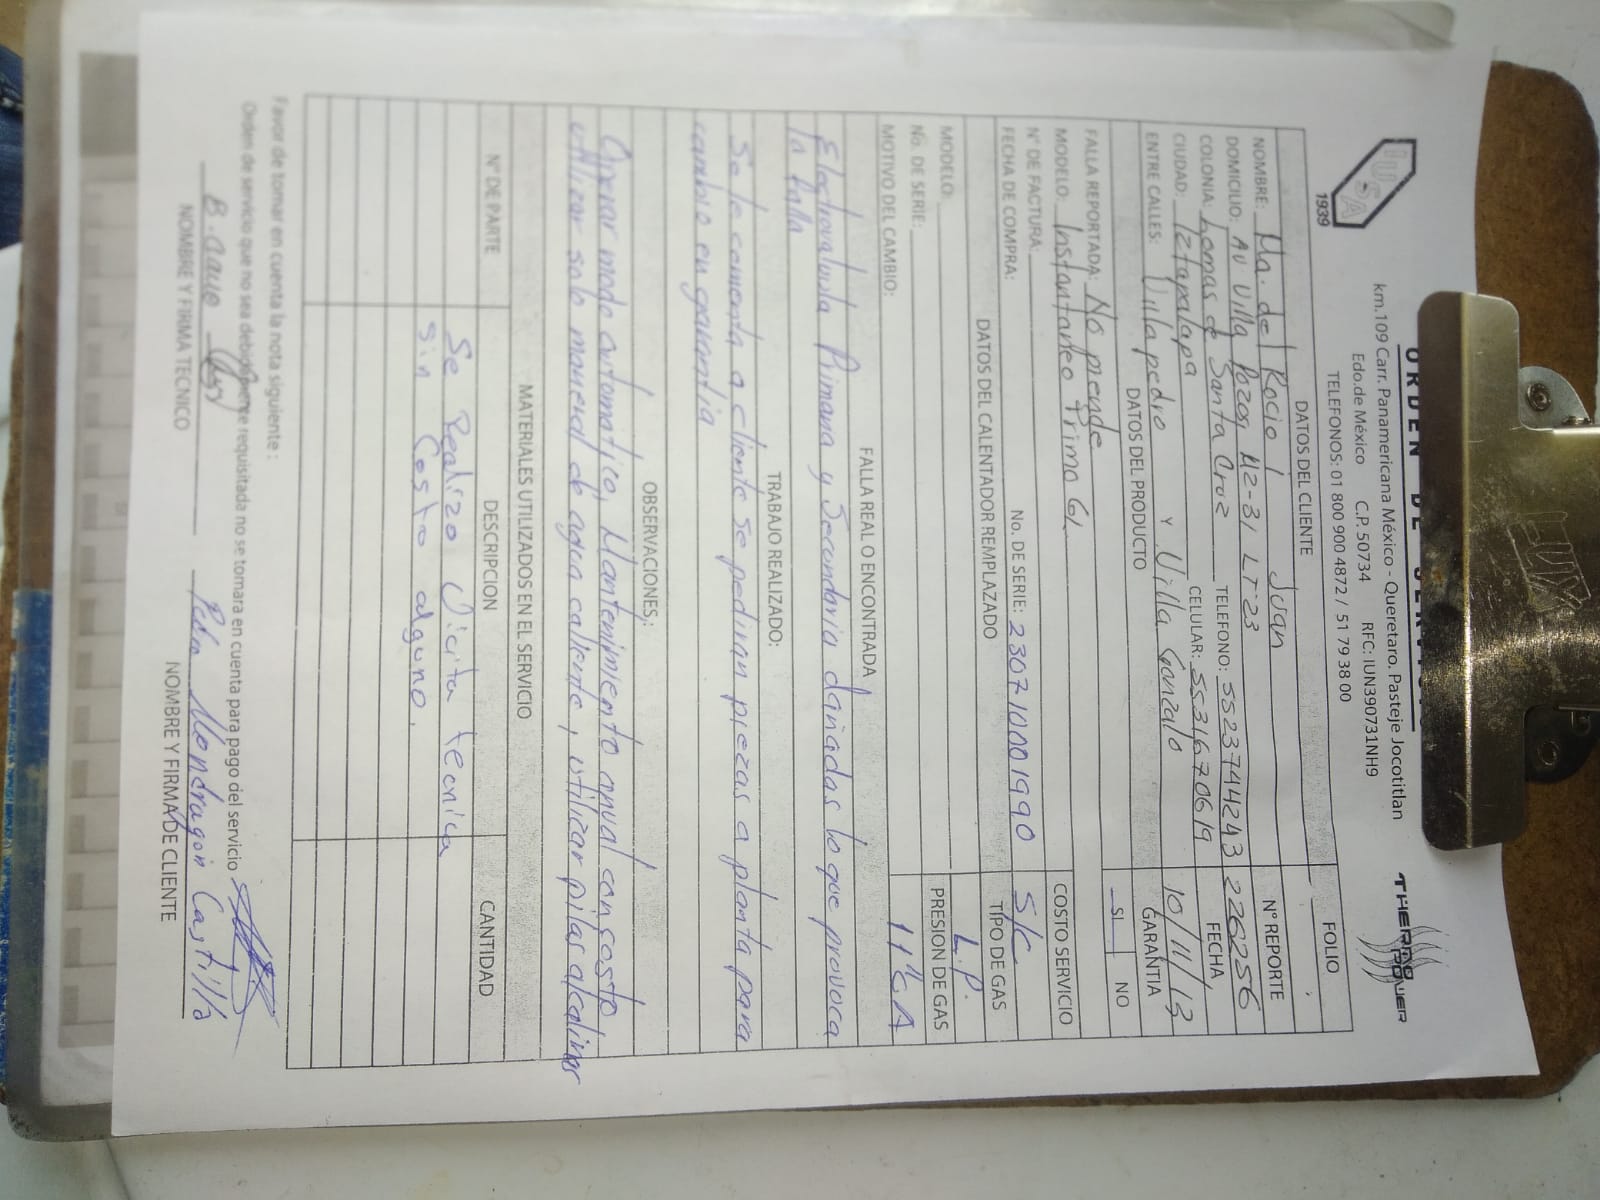 ORDEN DE SERVICIO
IUSA
1939
km.109 Carr. Panamericana México - Queretaro. Pasteje Jocotitlan
Edo.de México C.P. 50734 RFC: IUN390731NH9
TELEFONOS: 01 800 900 4872 / 51 79 38 00
THERMO POWER
DATOS DEL CLIENTE
FOLIO
NOMBRE: Ma. del Rocio Juan
Nº REPORTE
DOMICILIO: Av Villa Pozos Mz-31 LT23
TELEFONO: 5523744243
2262256
COLONIA: Lomas de Santa Cruz
CELULAR: 5531670619
FECHA
CIUDAD: Iztapalapa
10/11/
ENTRE CALLES: Villa pedro Y Villa Gonzalo
GARANTIA
DATOS DEL PRODUCTO
SI NO
FALLA REPORTADA: No prende
MODELO: Instantaneo Primo 6L
COSTO SERVICIO
Nº DE FACTURA:
No. DE SERIE: 230710001990
S/C
FECHA DE COMPRA:
TIPO DE GAS
DATOS DEL CALENTADOR REMPLAZADO
L.P.
MODELO:
PRESION DE GAS
No. DE SERIE:
11"CA
MOTIVO DEL CAMBIO:
FALLA REAL O ENCONTRADA
Electrovalvula Primaria y Secundaria dañadas lo que provoca
la falla
TRABAJO REALIZADO:
Se le comenta a cliente se pediran piezas a planta para
cambio en garantia
OBSERVACIONES,:
Operar modo automatico, Mantenimiento anual con costo,
utilizar solo manera de agua caliente, utilizar pilas alcalinas
MATERIALES UTILIZADOS EN EL SERVICIO
Nº DE PARTE DESCRIPCION CANTIDAD
Se Realizo Vicita tecnica
Sin Costo alguno.
Favor de tomar en cuenta la nota siguiente :
Orden de servicio que no sea debidamente requisitada no se tomara en cuenta para pago del servicio
Pedro Mondragon Castilla
NOMBRE Y FIRMA TECNICO
NOMBRE Y FIRMA DE CLIENTE